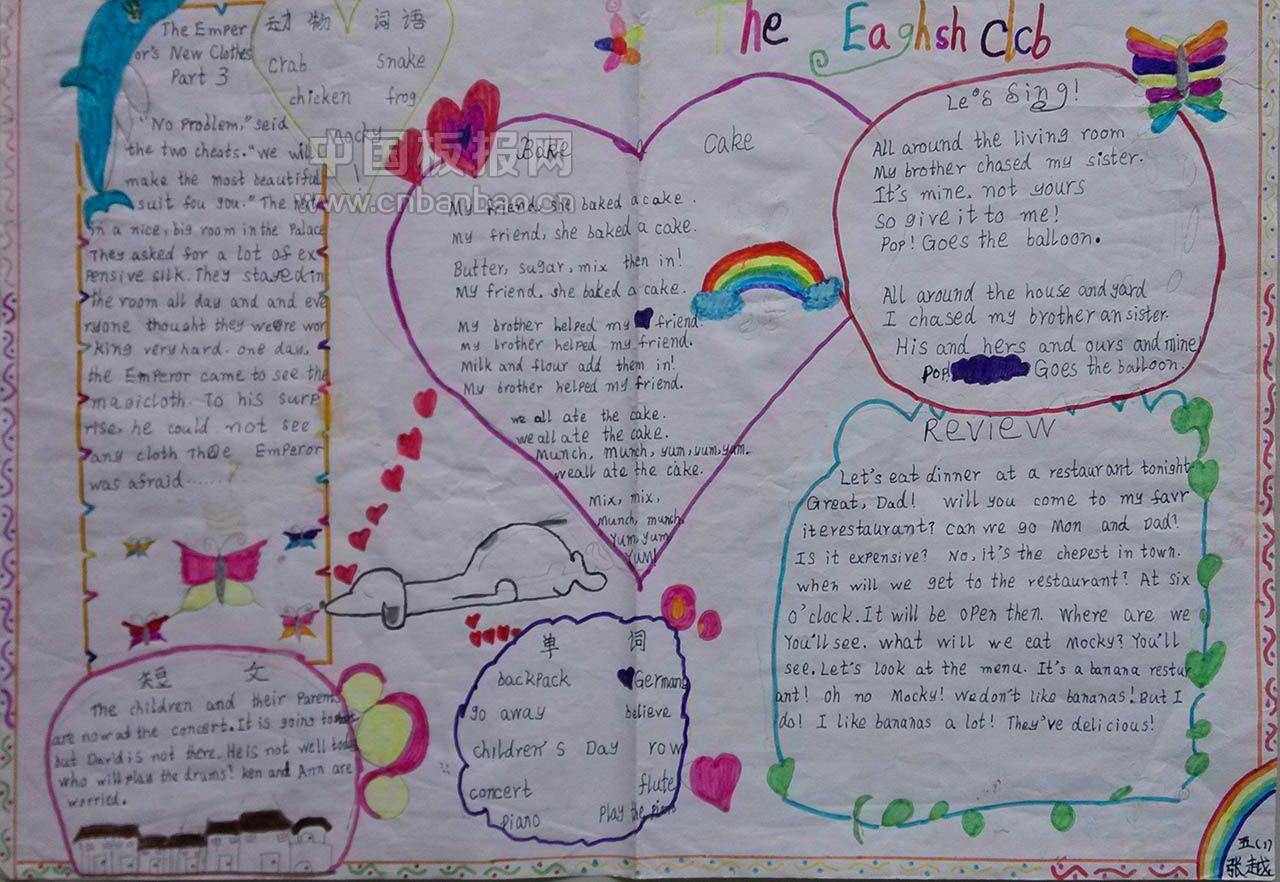 The Eaghsh clcb
The Emper
or's New Clothes
Part 3
"No problem," seid
the two cheats. "we will
make the most beautiful
suit fou you." The
in a nice, big room in the Palace
They asked for a lot of ex
pensive silk. They stayed in
the room all day and and eve
ryone thought they were wor
king very hard. one day,
the Emperor came to see the
magicloth. To his surp
rise, he could not see
any cloth The Emperor
was afraid......
动物 词语
crab snake
chicken frog
Mocky
中国板报网
www.cnbanbao.cn
Bake cake
My friend, she baked a cake.
my friend, she baked a cake.
Butter, sugar, mix then in!
My friend. she baked a cake.
My brother helped my friend.
my brother helped my friend.
Milk and flour add them in!
My brother helped my friend.
we all ate the cake.
we all ate the cake.
Munch, munch, yum, yum, yum.
we all ate the cake.
Mix, mix,
Munch, munch
Yum, yum
Yum!
Le's Sing!
All around the living room
My brother chased my sister.
It's mine. not yours
so give it to me!
Pop! Goes the balloon.
All around the house and yard
I chased my brother an sister.
His and hers and ours and mine!
Pop Goes the balloon.
Review
Let's eat dinner at a restaurant tonight
Great, Dad! will you come to my favr
iterestaurant? can we go Mon and Dad?
IS it expensive? No, it's the chepest in town.
when will we get to the restaurant? At six
o'clock. It will be open then. Where are we
You'll see. what will we eat Mocky? You'll
see. Let's look at the menu. It's a banana restur
ant! oh no Mocky! We don't like bananas! But I
do! I like bananas a lot! They've delicious!
短 文
The children and their Parens
are now at the concert. It is going to
but David is not there. He is not well today
who will play the drums! ken and Ann are
worried.
单 词
backpack German
go away believe
children's Day row
concert flute
piano play the piano
五(1)
张越